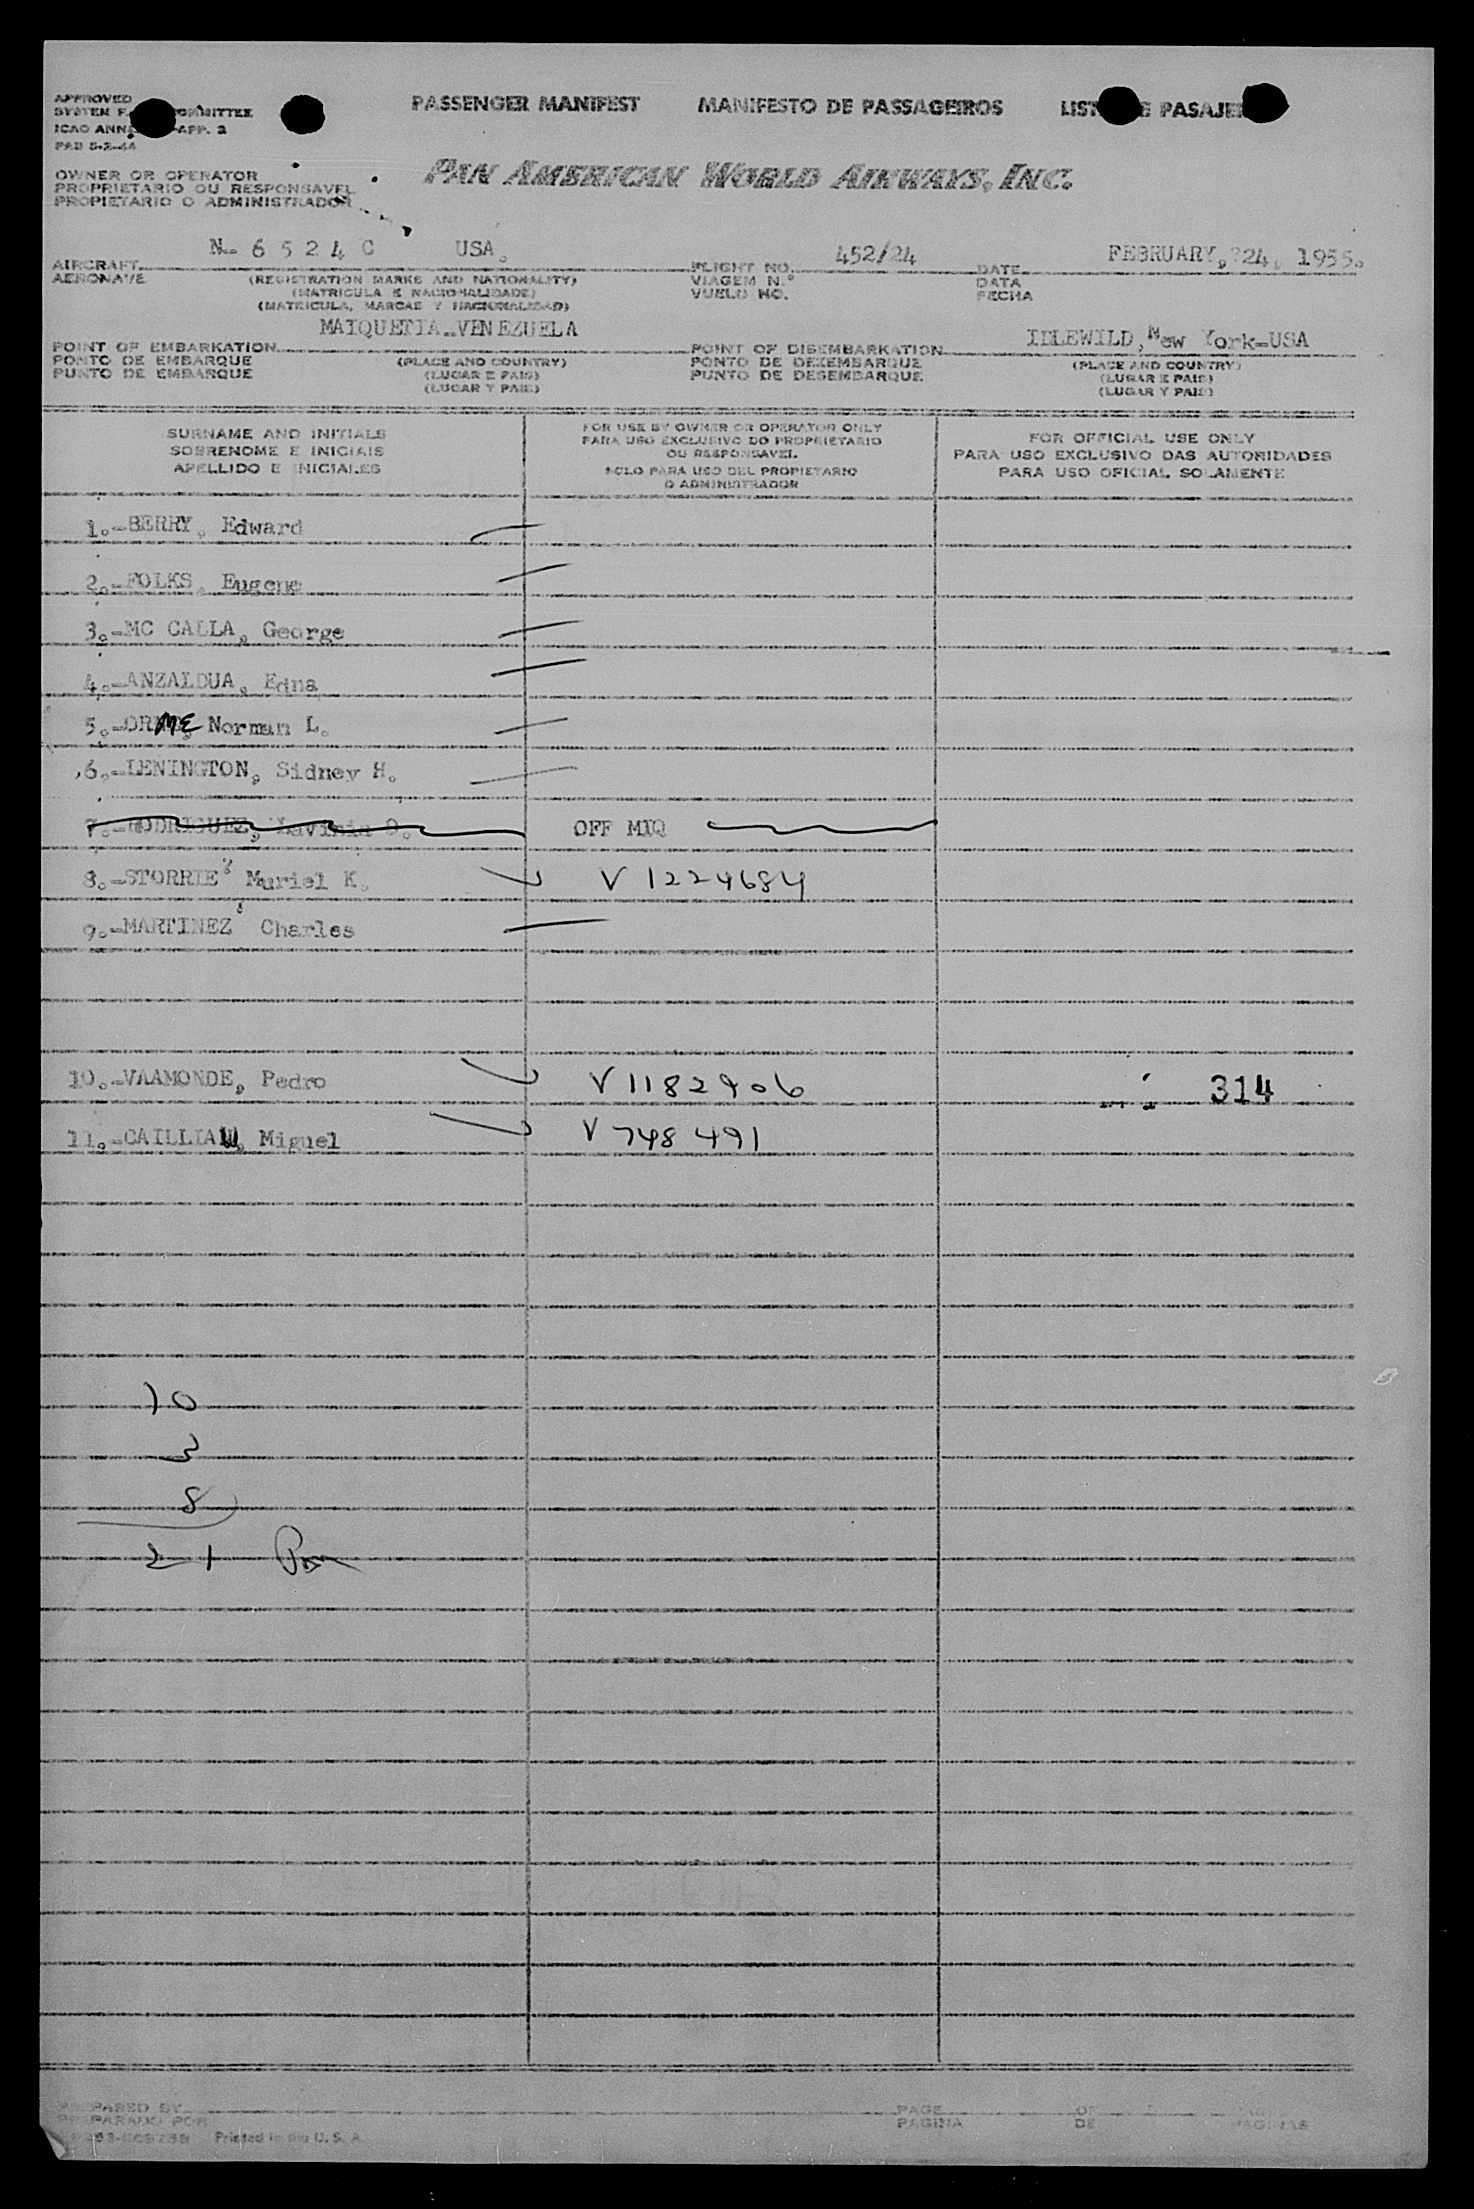 APPROVED
PASSENGER MANIFEST MANIFESTO DE PASSAGEIROS
ICAO APP. 2
OWNER OR OPERATOR
PROPRIETARIO OU RESPONSAVEL
PROPIETARIO O ADMINISTRADOR
PAN AMERICAN WORLD AIRWAYS, INC.
AIRCRAFT N- 6 5 2 4 C USA. FLIGHT NO. 452/24 DATE FEBRUARY, 24, 1955.
AERONAVE (REGISTRATION MARKS AND NATIONALITY) VIAGEM N.º DATA
(MATRICULA E NACIONALIDADE) VUELO NO. FECHA
(MATRICULA, MARCAS Y NACIONALIDAD)
POINT OF EMBARKATION MAIQUETIA-VENEZUELA POINT OF DISEMBARKATION IDLEWILD, New York-USA
PONTO DE EMBARQUE (PLACE AND COUNTRY) PONTO DE DESEMBARQUE (PLACE AND COUNTRY)
PUNTO DE EMBARQUE (LUGAR E PAIS) PUNTO DE DESEMBARQUE (LUGAR E PAIS)
(LUGAR Y PAIS) (LUGAR Y PAIS)
SURNAME AND INITIALS
SOBRENOME E INICIAIS
APELLIDO E INICIALES
FOR USE BY OWNER OR OPERATOR ONLY
PARA USO EXCLUSIVO DO PROPRIETARIO
OU RESPONSAVEL
SOLO PARA USO DEL PROPIETARIO
O ADMINISTRADOR
FOR OFFICIAL USE ONLY
PARA USO EXCLUSIVO DAS AUTORIDADES
PARA USO OFICIAL SOLAMENTE
1.-BERRY, Edward
2.-FOLKS, Eugene
3.-MC CALLA, George
4.-ANZALDUA, Edna
5.-ORME, Norman L.
6.-LENINGTON, Sidney H.
7.-RODRIGUEZ, Lavinia O. OFF MIQ
8.-STORRIE, Muriel K. V 1224684
9.-MARTINEZ, Charles
10.-VAAMONDE, Pedro V 1182906 314
11.-CAILLIAU, Miguel V 748 491
10
3
8
21
PREPARED BY PAGE OF
PREPARADO POR PAGINA DE
Printed in the U. S. A.